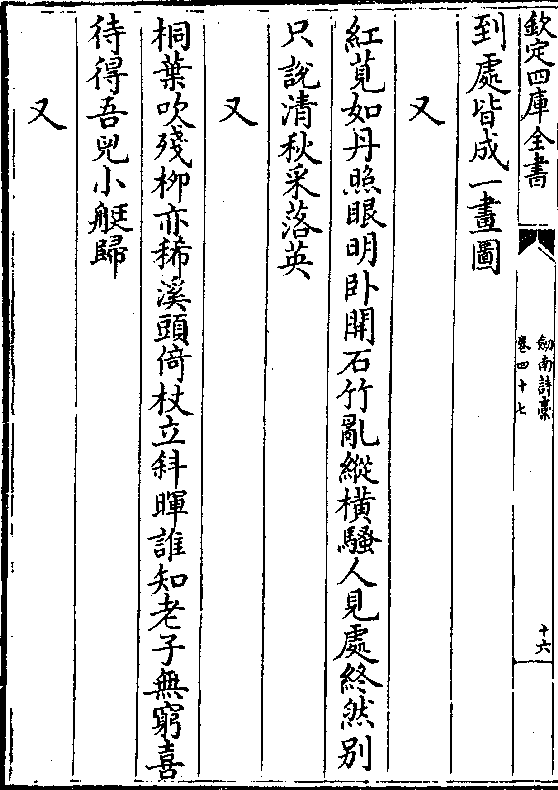 欽定四庫全書
劒南詩藁
卷四十七
十六
到處皆成一畫圖
又
紅莧如丹照眼明卧開石竹亂縱橫騷人見處終然别
只說清秋采落英
又
桐葉吹殘柳亦稀溪頭倚杖立斜暉誰知老子無窮喜
待得吾兒小艇歸
又